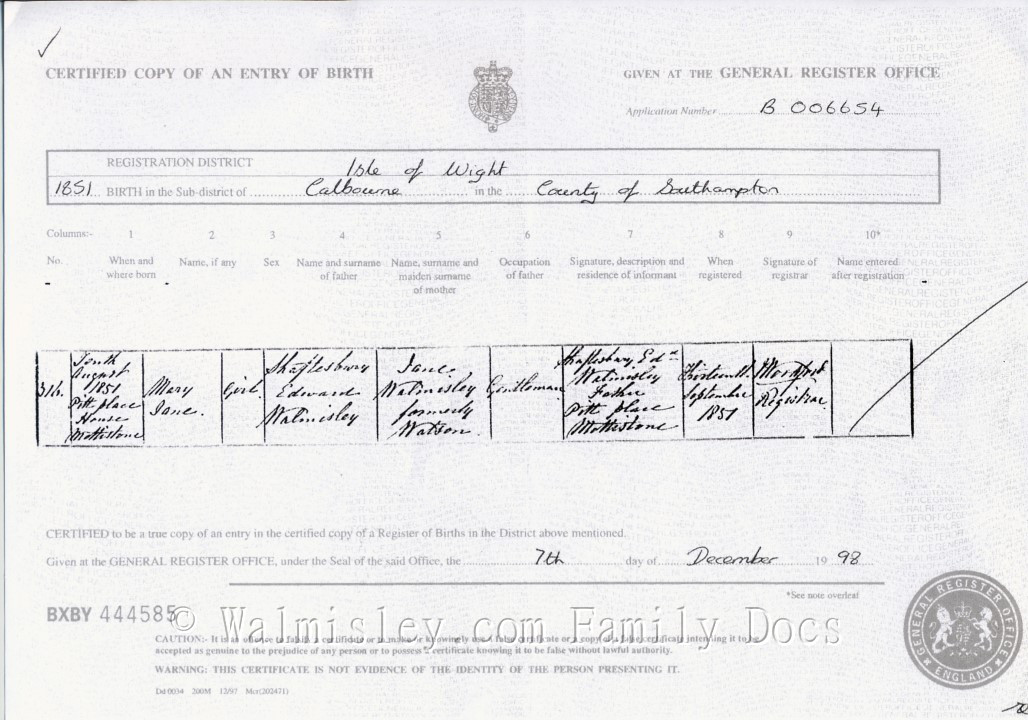 CERTIFIED COPY OF AN ENTRY OF BIRTH
GIVEN AT THE GENERAL REGISTER OFFICE
Application Number B 006654
REGISTRATION DISTRICT Isle of Wight
1851 BIRTH in the Sub-district of Calbourne in the County of Southampton
Columns:- 1 2 3 4 5 6 7 8 9 10*
No. When and where born
Name, if any
Sex
Name and surname of father
Name, surname and maiden surname of mother
Occupation of father
Signature, description and residence of informant
When registered
Signature of registrar
Name entered after registration
316.
Tenth
August
1851
Pitt place
House
Mottistone
Mary
Jane.
Girl.
Shaftesbury
Edward
Walmisley
Jane
Walmisley
formerly
Watson.
Gentleman
Shaftesbury Edd
Walmisley
Father
Pitt place
Mottistone
Thirteenth
September
1851
Registrar
CERTIFIED to be a true copy of an entry in the certified copy of a Register of Births in the District above mentioned.
Given at the GENERAL REGISTER OFFICE, under the Seal of the said Office, the 7th day of December 1998
*See note overleaf
BXBY 444585
© Walmisley.com Family Docs
CAUTION:- It is an offence to falsify a certificate or to make or knowingly use a false certificate or a copy of a false certificate intending it to be
accepted as genuine to the prejudice of any person or to possess a certificate knowing it to be false without lawful authority.
WARNING: THIS CERTIFICATE IS NOT EVIDENCE OF THE IDENTITY OF THE PERSON PRESENTING IT.
Dd 0034 200M 12/97 Mcr(202471)
GENERAL REGISTER OFFICE
ENGLAND